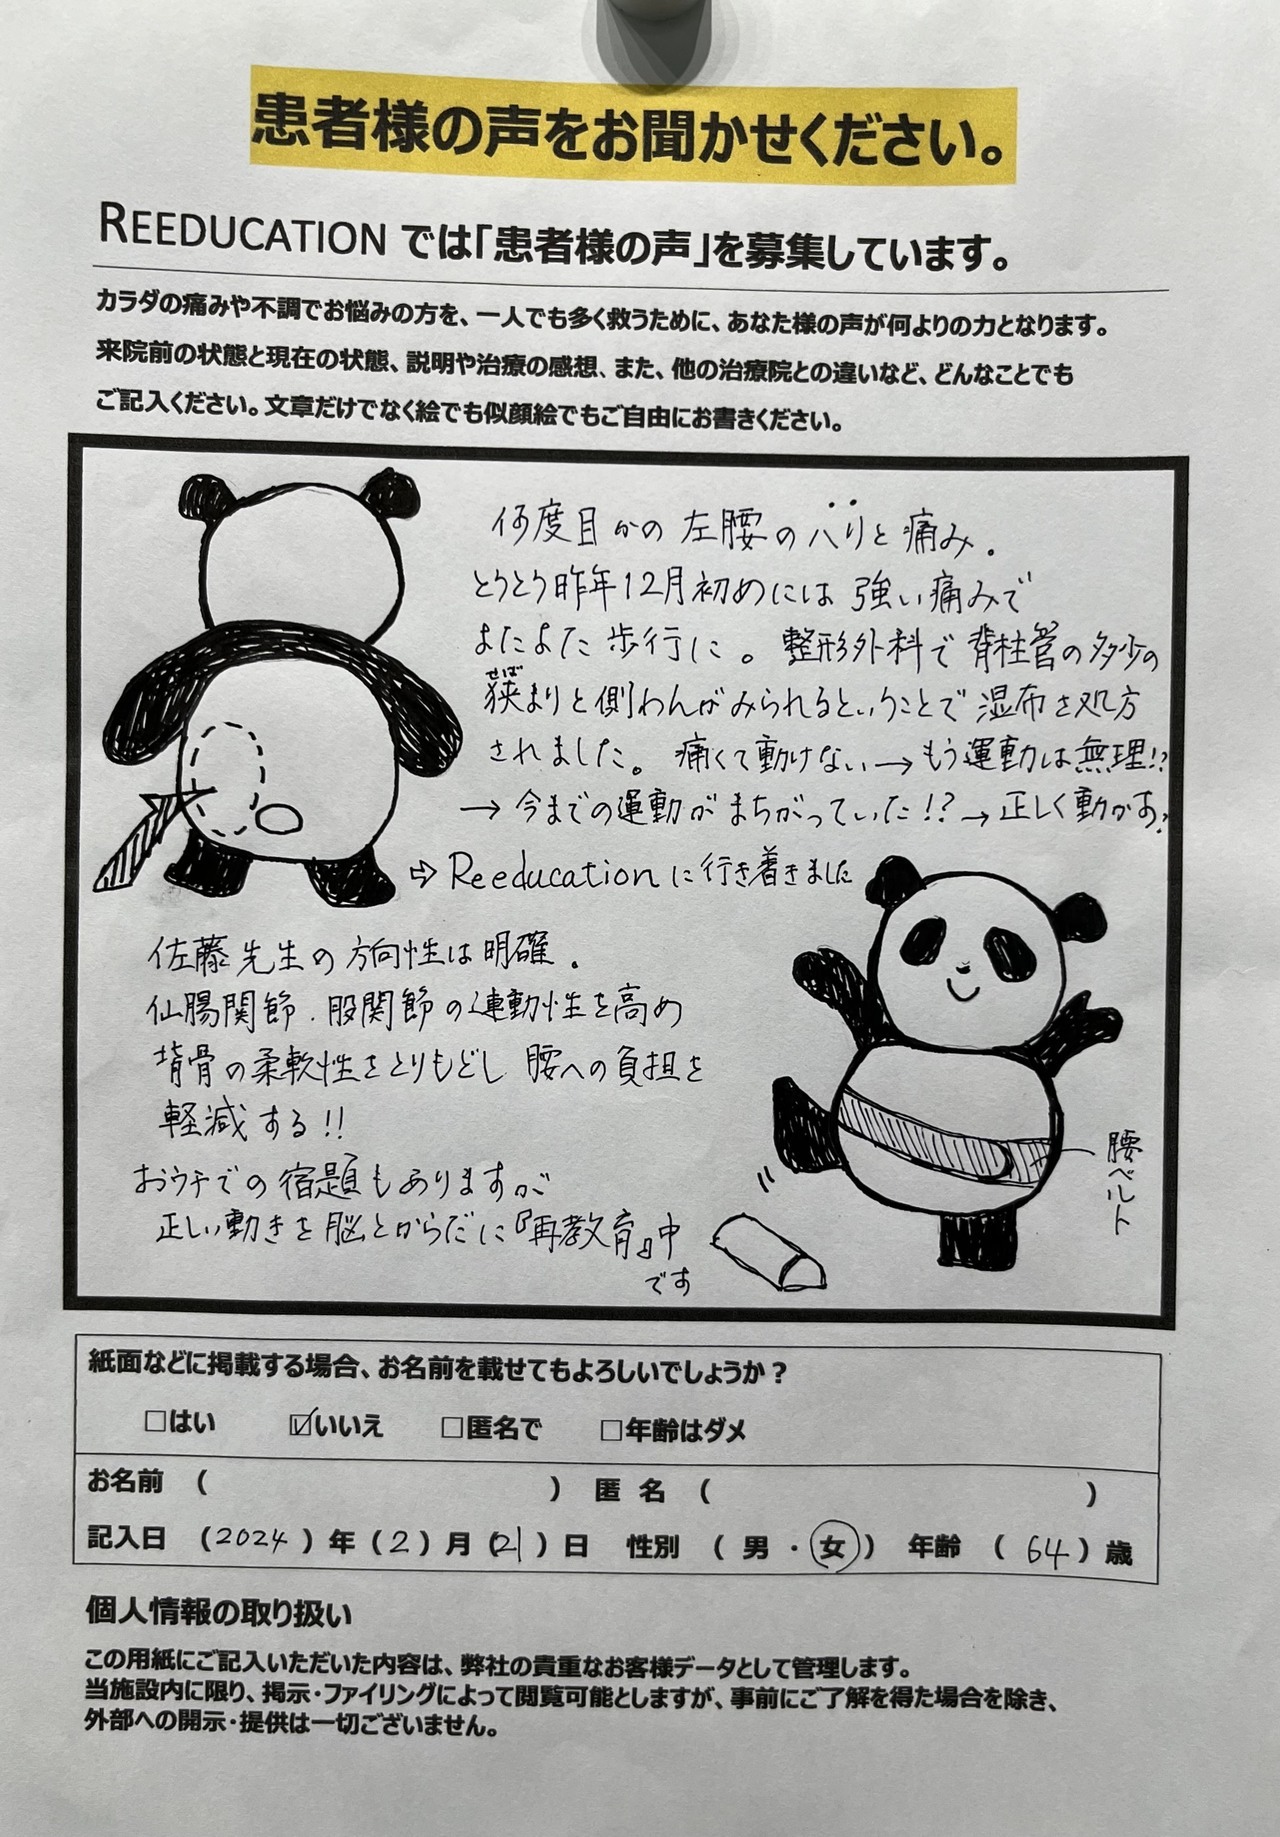 患者様の声をお聞かせください。
REEDUCATION では「患者様の声」を募集しています。
カラダの痛みや不調でお悩みの方を、一人でも多く救うために、あなた様の声が何よりの力となります。
来院前の状態と現在の状態、説明や治療の感想、また、他の治療院との違いなど、どんなことでも
ご記入ください。文章だけでなく絵でも似顔絵でもご自由にお書きください。
何度目かの左腰のハリと痛み.
とうとう昨年12月初めには強い痛みで
よたよた歩行に。整形外科で脊柱管の多少の
せば
狭まりと側わんがみられるということで湿布を処方
されました。痛くて動けない→もう運動は無理!?
→今までの運動がまちがっていた!?→正しく動かす?
⇨Reeducationに行き着きました
佐藤先生の方向性は明確.
仙腸関節.股関節の連動性を高め
背骨の柔軟性をとりもどし腰への負担を
軽減する!!
おウチでの宿題もありますが
正しい動きを脳とからだに『再教育』中
です
腰ベルト
紙面などに掲載する場合、お名前を載せてもよろしいでしょうか？
□はい ☑いいえ □匿名で □年齢はダメ
お名前 （ ） 匿名 （ ）
記入日 （2024）年（2）月（21）日 性別 （男・女） 年齢 （64）歳
個人情報の取り扱い
この用紙にご記入いただいた内容は、弊社の貴重なお客様データとして管理します。
当施設内に限り、掲示・ファイリングによって閲覧可能としますが、事前にご了解を得た場合を除き、
外部への開示・提供は一切ございません。